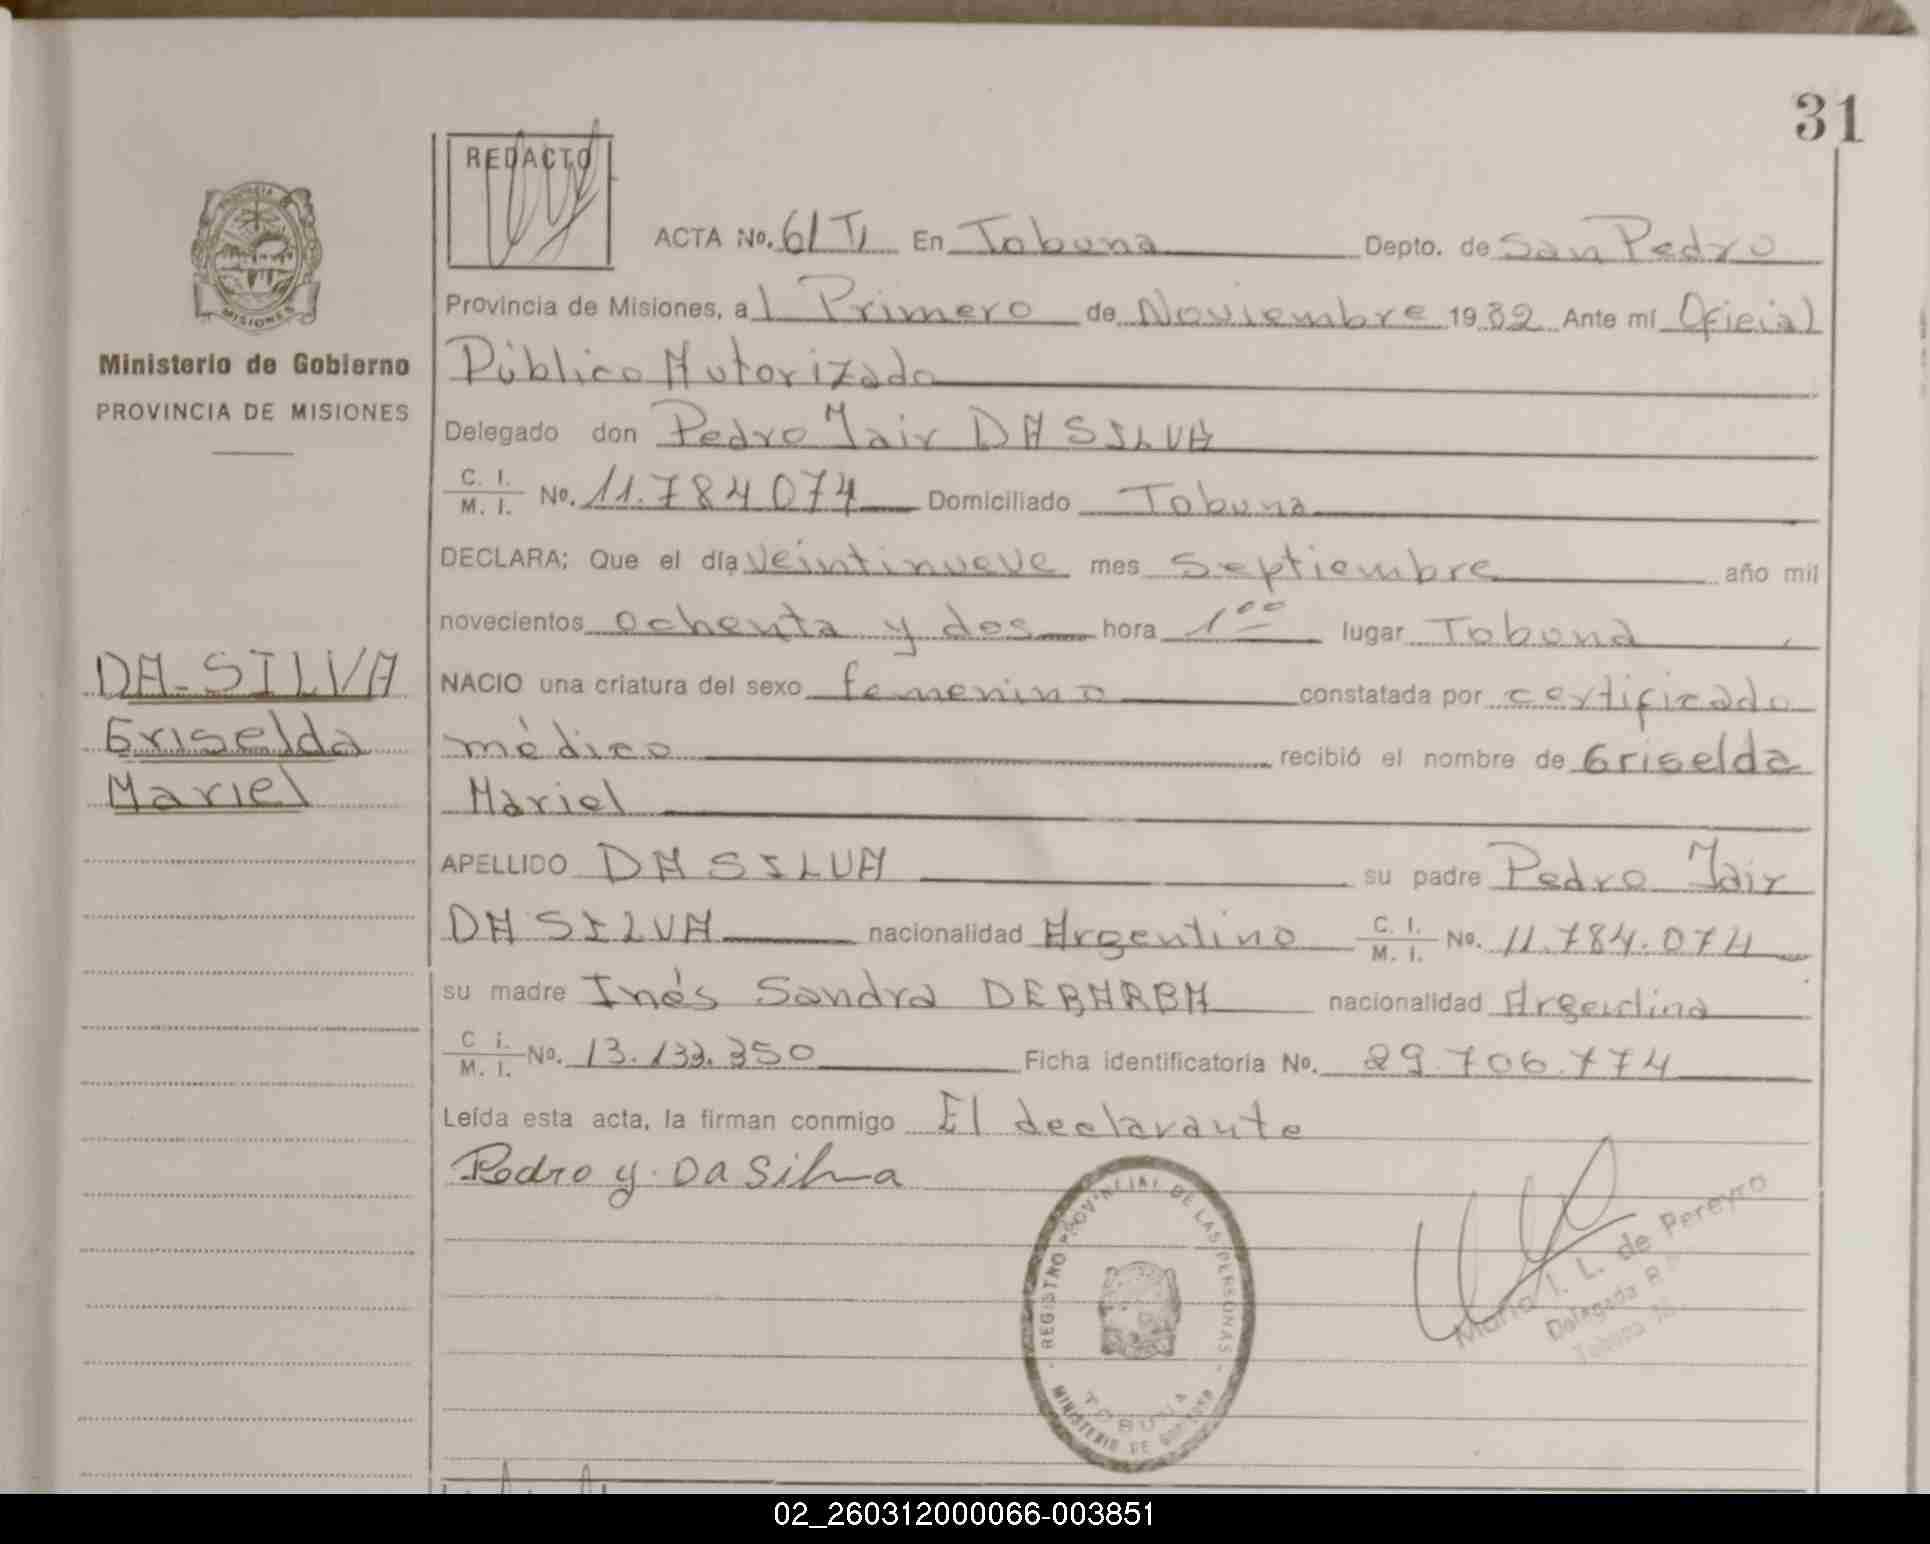 31
REDACTO
ACTA No. 61 T1 En Tobuna Depto. de San Pedro
PROVINCIA
MISIONES
Provincia de Misiones, a l Primero de Noviembre 1982 Ante mí Oficial
Ministerio de Gobierno
PROVINCIA DE MISIONES
Público Autorizado
Delegado don Pedro Jair DA SILVA
C. I. / M. I. No. 11.784074 Domiciliado Tobuna
DECLARA: Que el día veintinueve mes septiembre año mil
novecientos ochenta y dos hora 1 00 lugar Tobuna
DA-SILVA
Griselda
Mariel
NACIO una criatura del sexo femenino constatada por certificado
médico recibió el nombre de Griselda
Mariel
APELLIDO DA SILVA su padre Pedro Jair
DA SILVA nacionalidad Argentino C. I. / M. I. No. 11.784.074
su madre Inés Sandra DEBARBA nacionalidad Argentina
C i. / M. I. No. 13.133.350 Ficha identificatoria No. 29.706.774
Leída esta acta, la firman conmigo El declarante
Pedro y. Da Silva
REGISTRO PROVINCIAL DE LAS PERSONAS
TOBUNA
MINISTERIO DE GOBIERNO
María I. L. de Pereyro
Delegada R
Tobuna
02_260312000066-003851